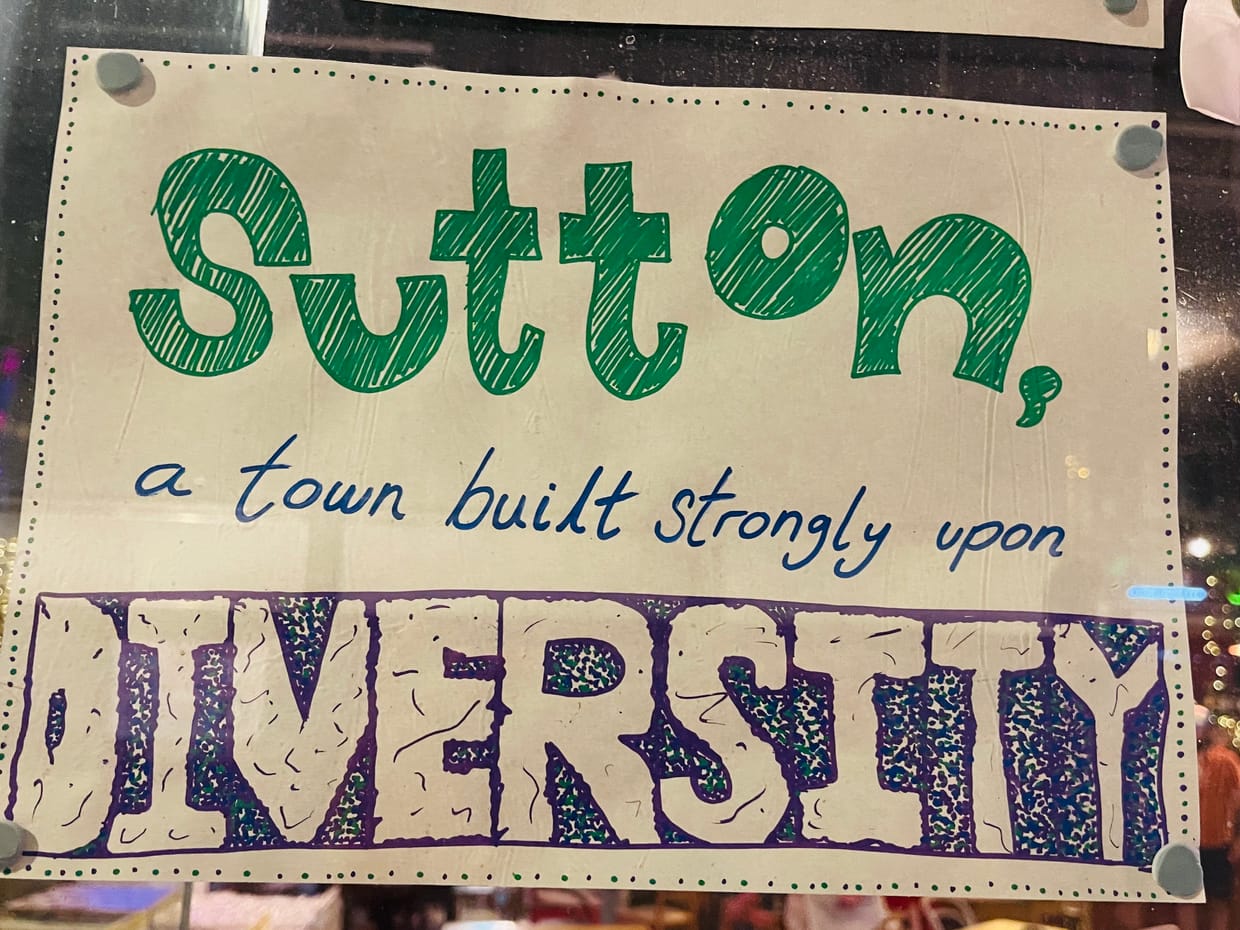 Sutton,
a town built strongly upon
DIVERSITY